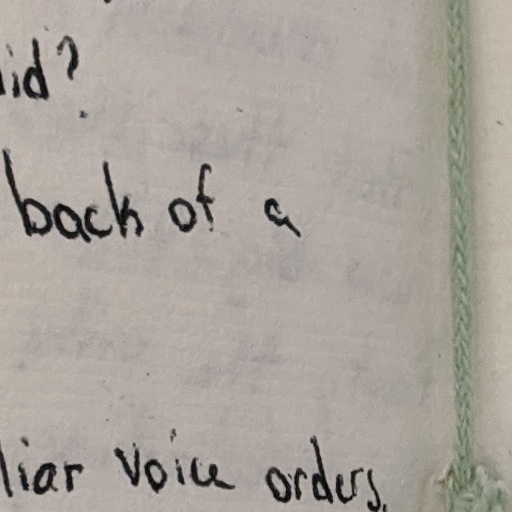 lid?
back of a
liar voice orders,